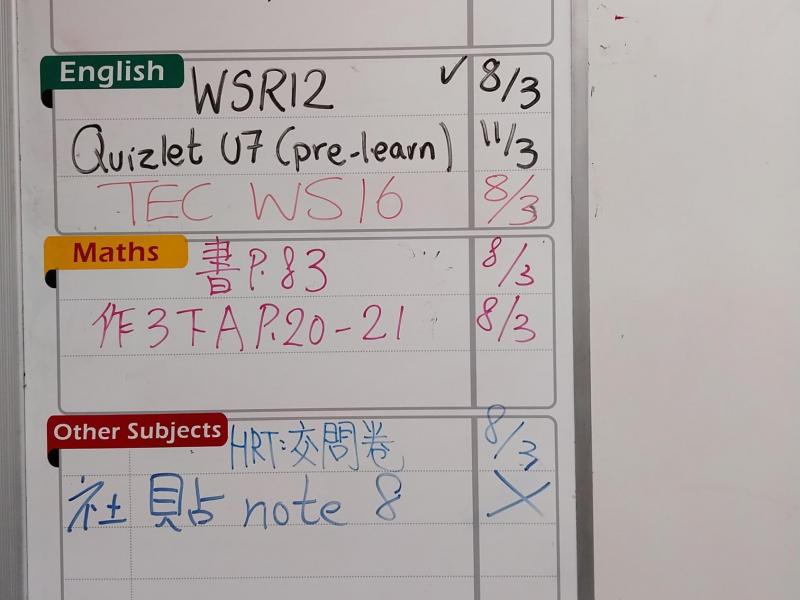 English
WSR12 ✓ 8/3
Quizlet U7 (pre-learn) 11/3
TEC WS16 8/3
Maths
書 P.83 8/3
作3下A P.20-21 8/3
Other Subjects
HRT:交問卷 8/3
社 貼 note 8 X